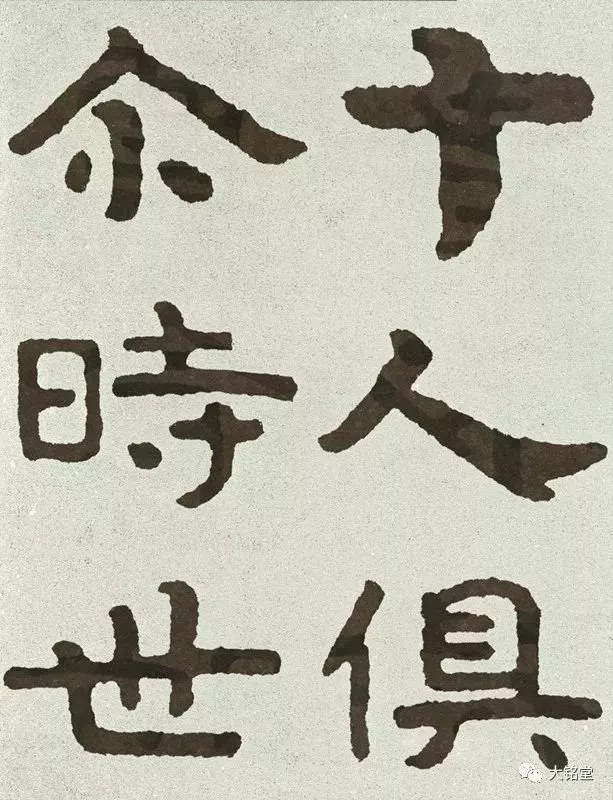 十人俱
尒時世
大铭堂